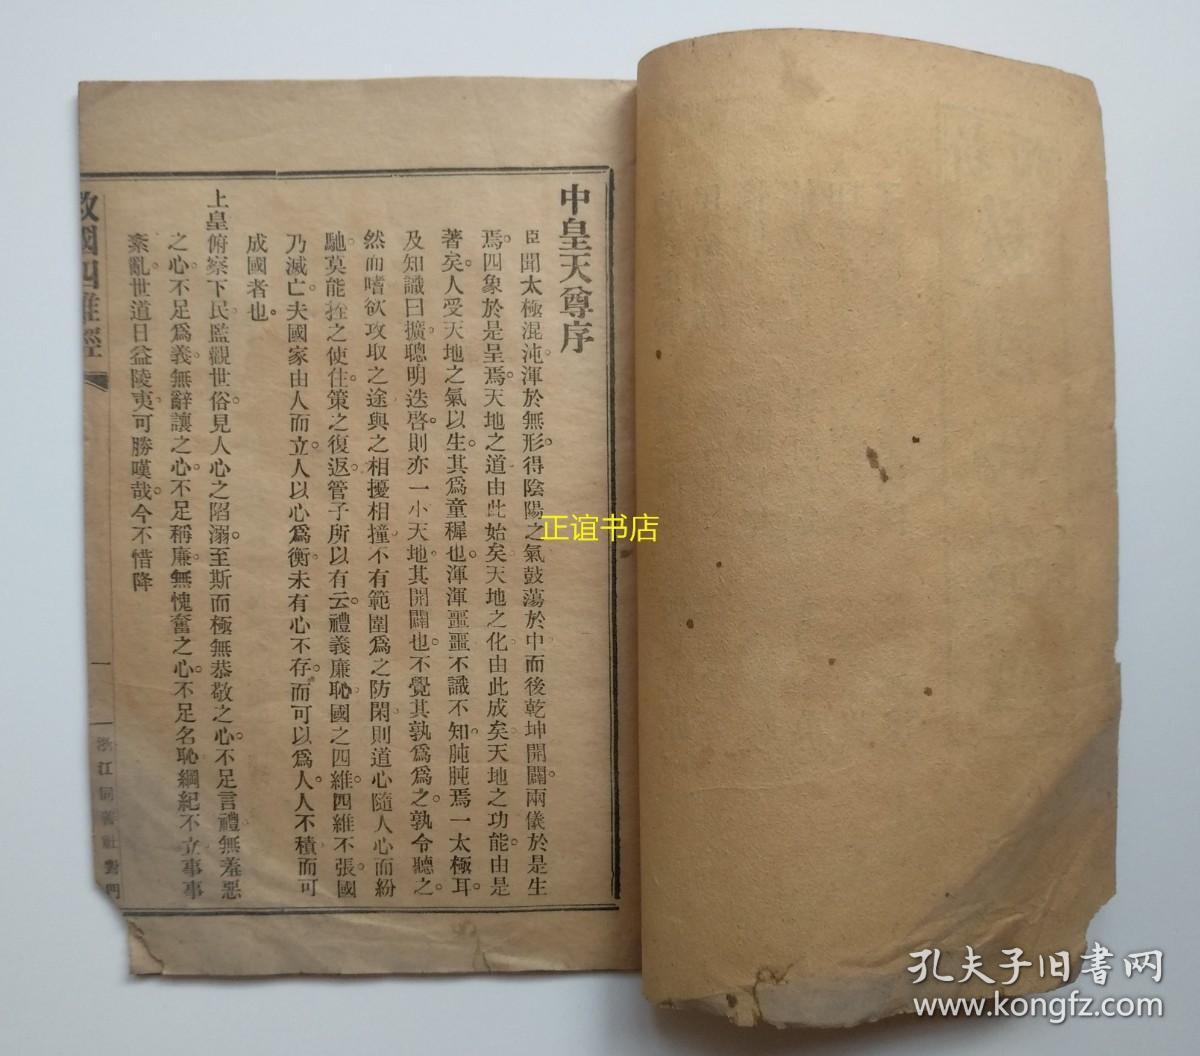 中皇天尊序
臣聞太極混沌。渾於無形。得陰陽之氣鼓蕩於中而後乾坤開闢。兩儀於是生
焉。四象於是呈焉。天地之道由此始矣天地之化由此成矣天地之功能。由是
著矣。人受天地之氣以生。其爲童穉也。渾渾噩噩不識不知。肫肫焉一太極耳。
及知識日擴。聰明迭啓。則亦一小天地。其開闢也。不覺其孰爲爲之。孰令聽之。
然而嗜欲攻取之途與之相擾相撞。不有範圍爲之防閑。則道心隨人心而紛
馳。莫能拴之使住。策之復返。管子所以有云。禮義廉恥。國之四維。四維不張。國
乃滅亡。夫國家由人而立。人以心爲衡。未有心不存。而可以爲人。人不積而可
成國者也。
上皇俯察下民。監觀世俗。見人心之陷溺。至斯而極。無恭敬之心。不足言禮。無羞惡
之心。不足爲義。無辭讓之心。不足稱廉。無愧奮之心。不足名恥。綱紀不立。事事
紊亂。世道日益陵夷。可勝嘆哉。今不惜降
救國四維經
一
浙江同善社對門
正谊书店
孔夫子旧书网
www.kongfz.com